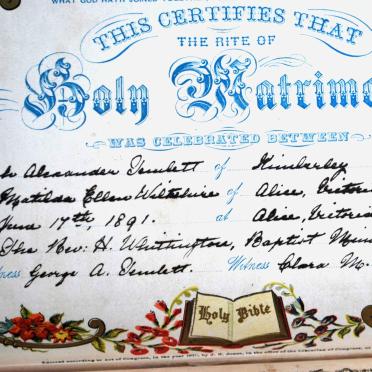 WHAT GOD HATH JOINED
THIS CERTIFIES THAT
THE RITE OF
Holy Matrimo
WAS CELEBRATED BETWEEN
Alexander Tewlett of Kimberley
Matilda Ellen Wiltshire of Alice, Victoria
June 17th, 1891. at Alice, Victoria
The Rev: H. Whittington, Baptist Min
ness George A. Tewlett. Witness Clara M.
Holy Bible
Entered according to Act of Congress, in the year
in the office of the Librarian of Congress